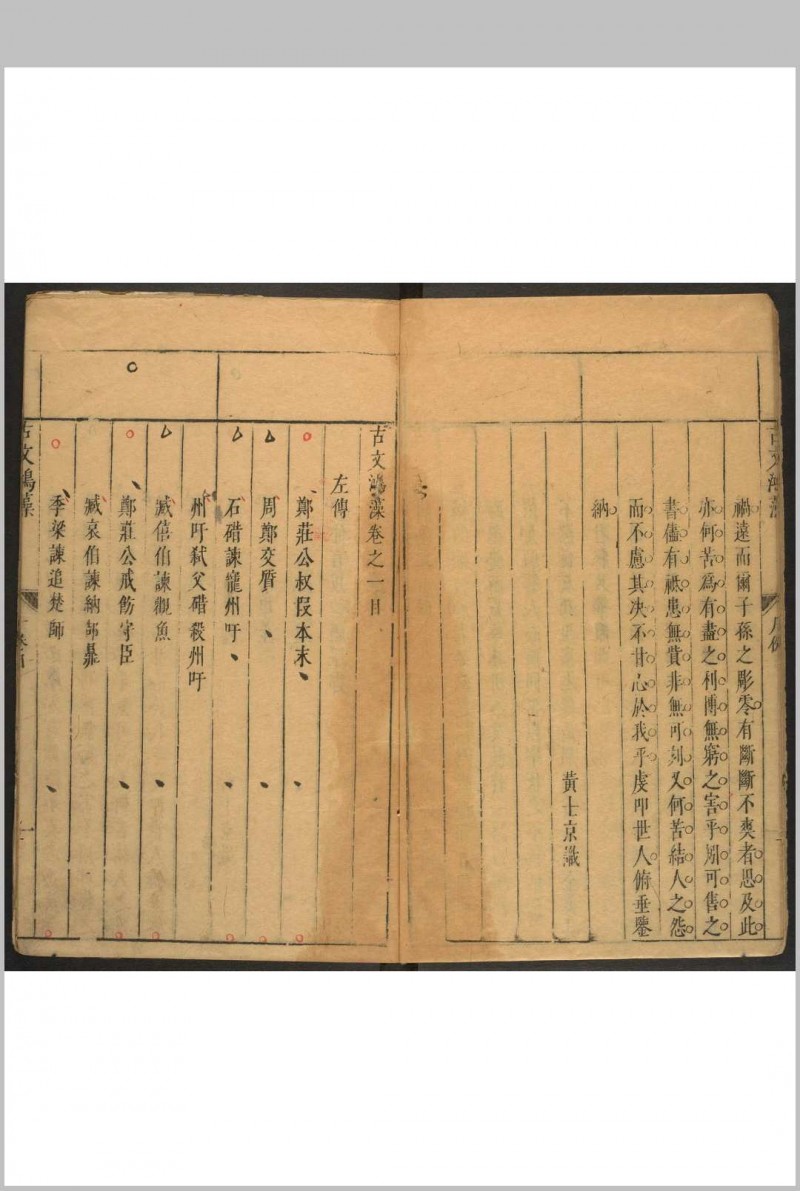 禍遠而爾子孫之彫零有斷斷不爽者思及此
亦何苦爲有盡之利博無窮之害乎矧可售之
書儘有祇患無貲非無可刻又何苦結人之怨
而不慮其决不甘心於我乎虔叩世人俯垂鑒
納
黃士京識
古文鴻藻卷之一目
左傳
鄭莊公叔段本末
周鄭交質
石碏諫寵州吁
州吁弑父碏殺州吁
臧僖伯諫觀魚
鄭莊公戒飭守臣
臧哀伯諫納郜鼎
季梁諫追楚師
古文鴻藻
一